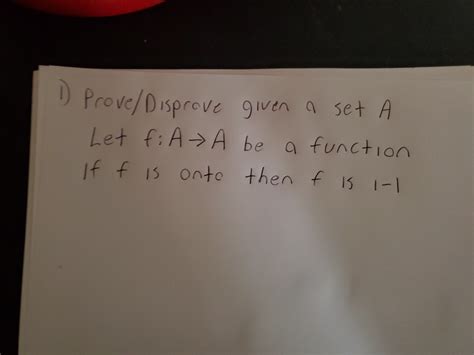 1) Prove/Disprove given a set A
Let f: A → A be a function
If f is onto then f is 1-1